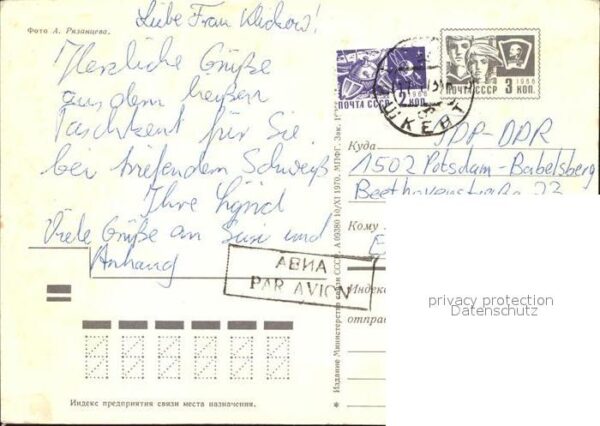 Фото А. Рязанцева.
Liebe Frau
Herzliche Grüße
aus dem heißen
Taschkent für Sie
bei triefendem Schweiß
Ihre
Viele Grüße an Susi und
Anhang
ПОЧТА СССР 2 КОП. 1966
ПОЧТА СССР 3 КОП. 1966
Куда DDR
1502 Potsdam-Babelsberg
Beethovenstraße 23
Кому
АВИА
PAR AVION
Индекс
отправ
privacy protection
Datenschutz
Индекс предприятия связи места назначения.
* Издание Министерства связи СССР. А 09380 10/XI 1970. МПФГ. Зак.